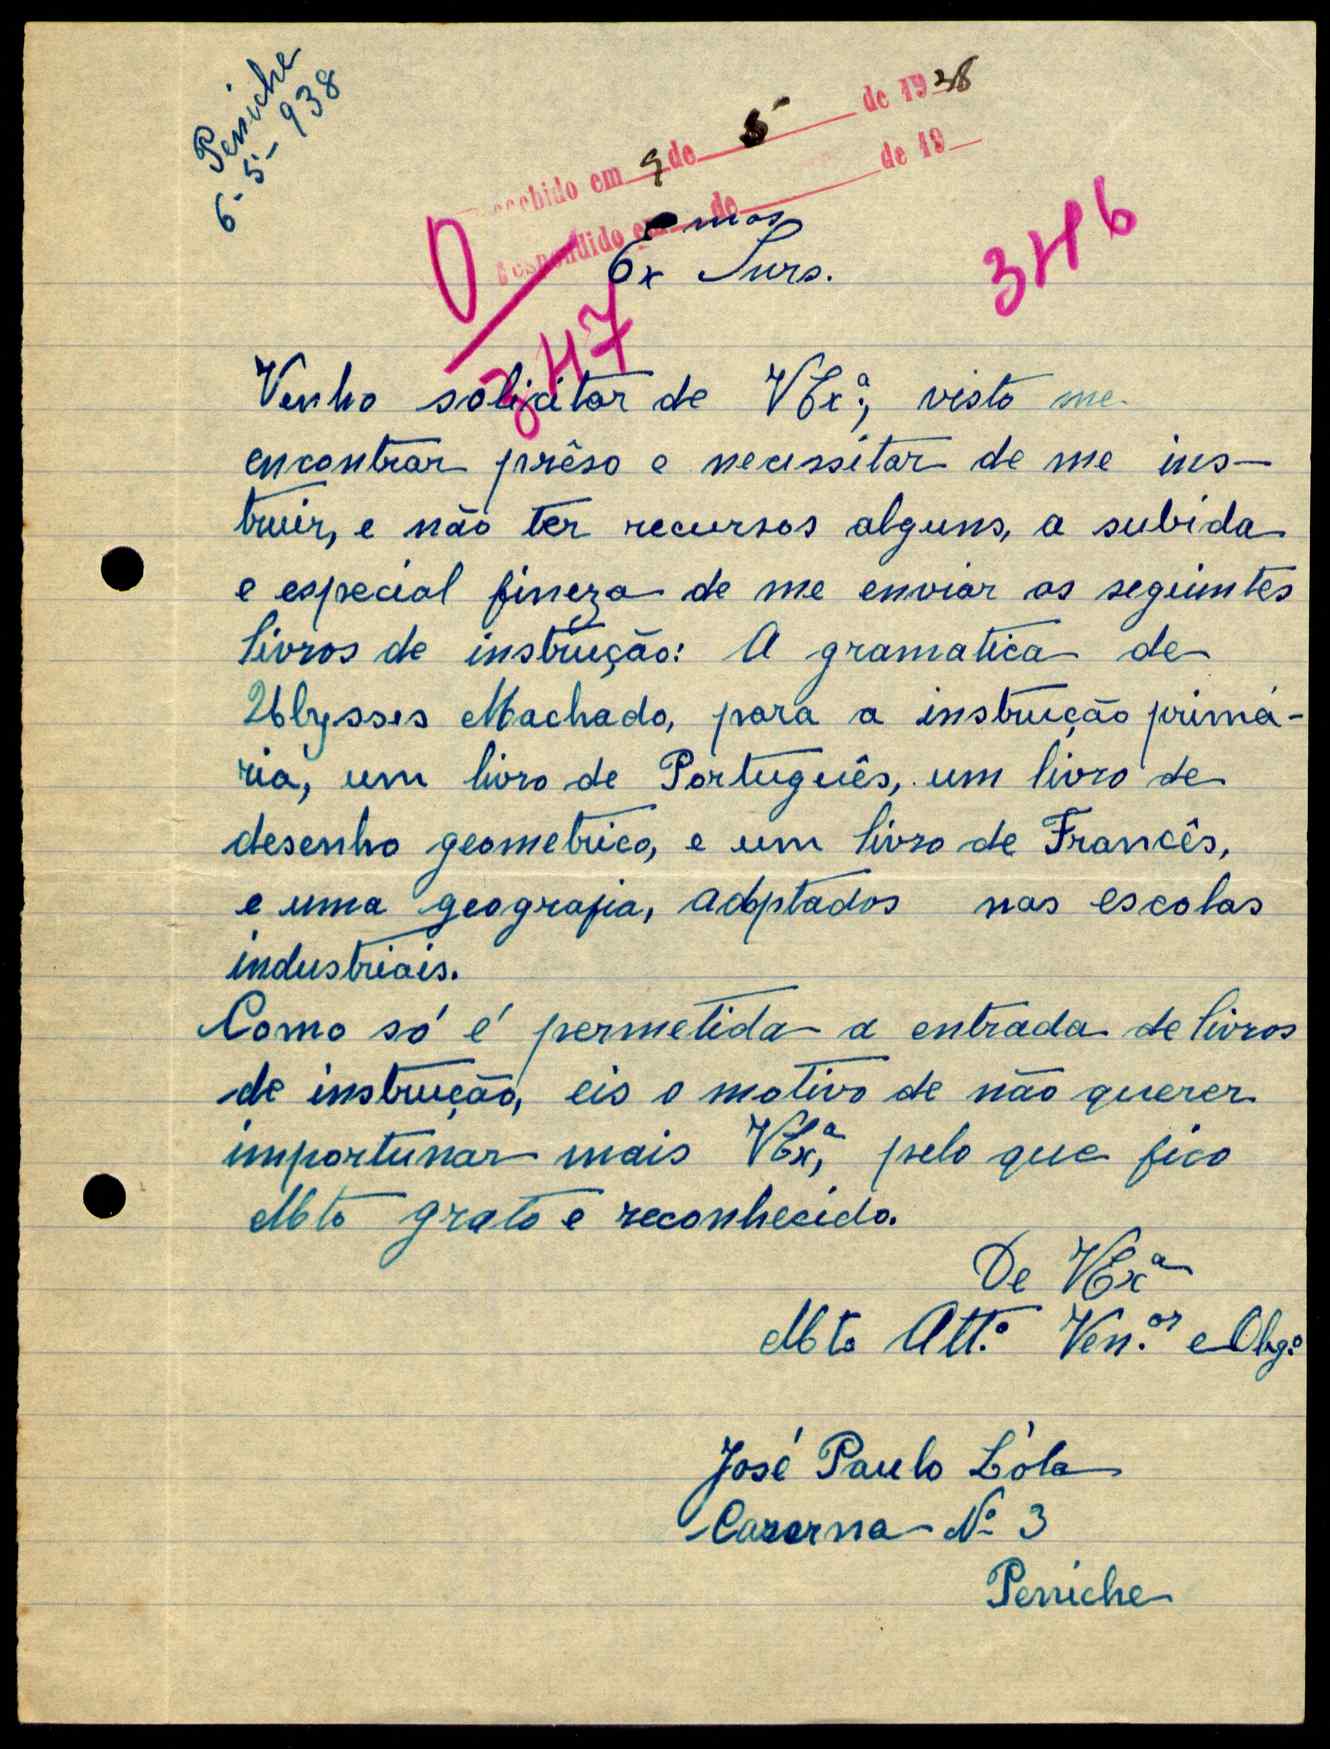 Peniche
6-5-938
Recebido em 9 de 5 de 1938
Respondido em de de 19
3HH6
3H7
Ex.mos Snrs.
Venho solicitar de VExª, visto me
encontrar prêso e necessitar de me ins-
truir, e não ter recursos alguns, a subida
e especial fineza de me enviar os seguintes
livros de instrução: A gramatica de
Ulysses Machado, para a instrução primá-
ria, um livro de Português, um livro de
desenho geometrico, e um livro de Francês,
e uma geografia, adoptados nas escolas
industriais.
Como só é permetida a entrada de livros
de instrução, eis o motivo de não querer
importunar mais VExª, pelo que fico
Mto grato e reconhecido.
De VExª
Mto Att.º Ven.or e Obg.º
José Paulo Lóla
Cazerna Nº 3
Peniche